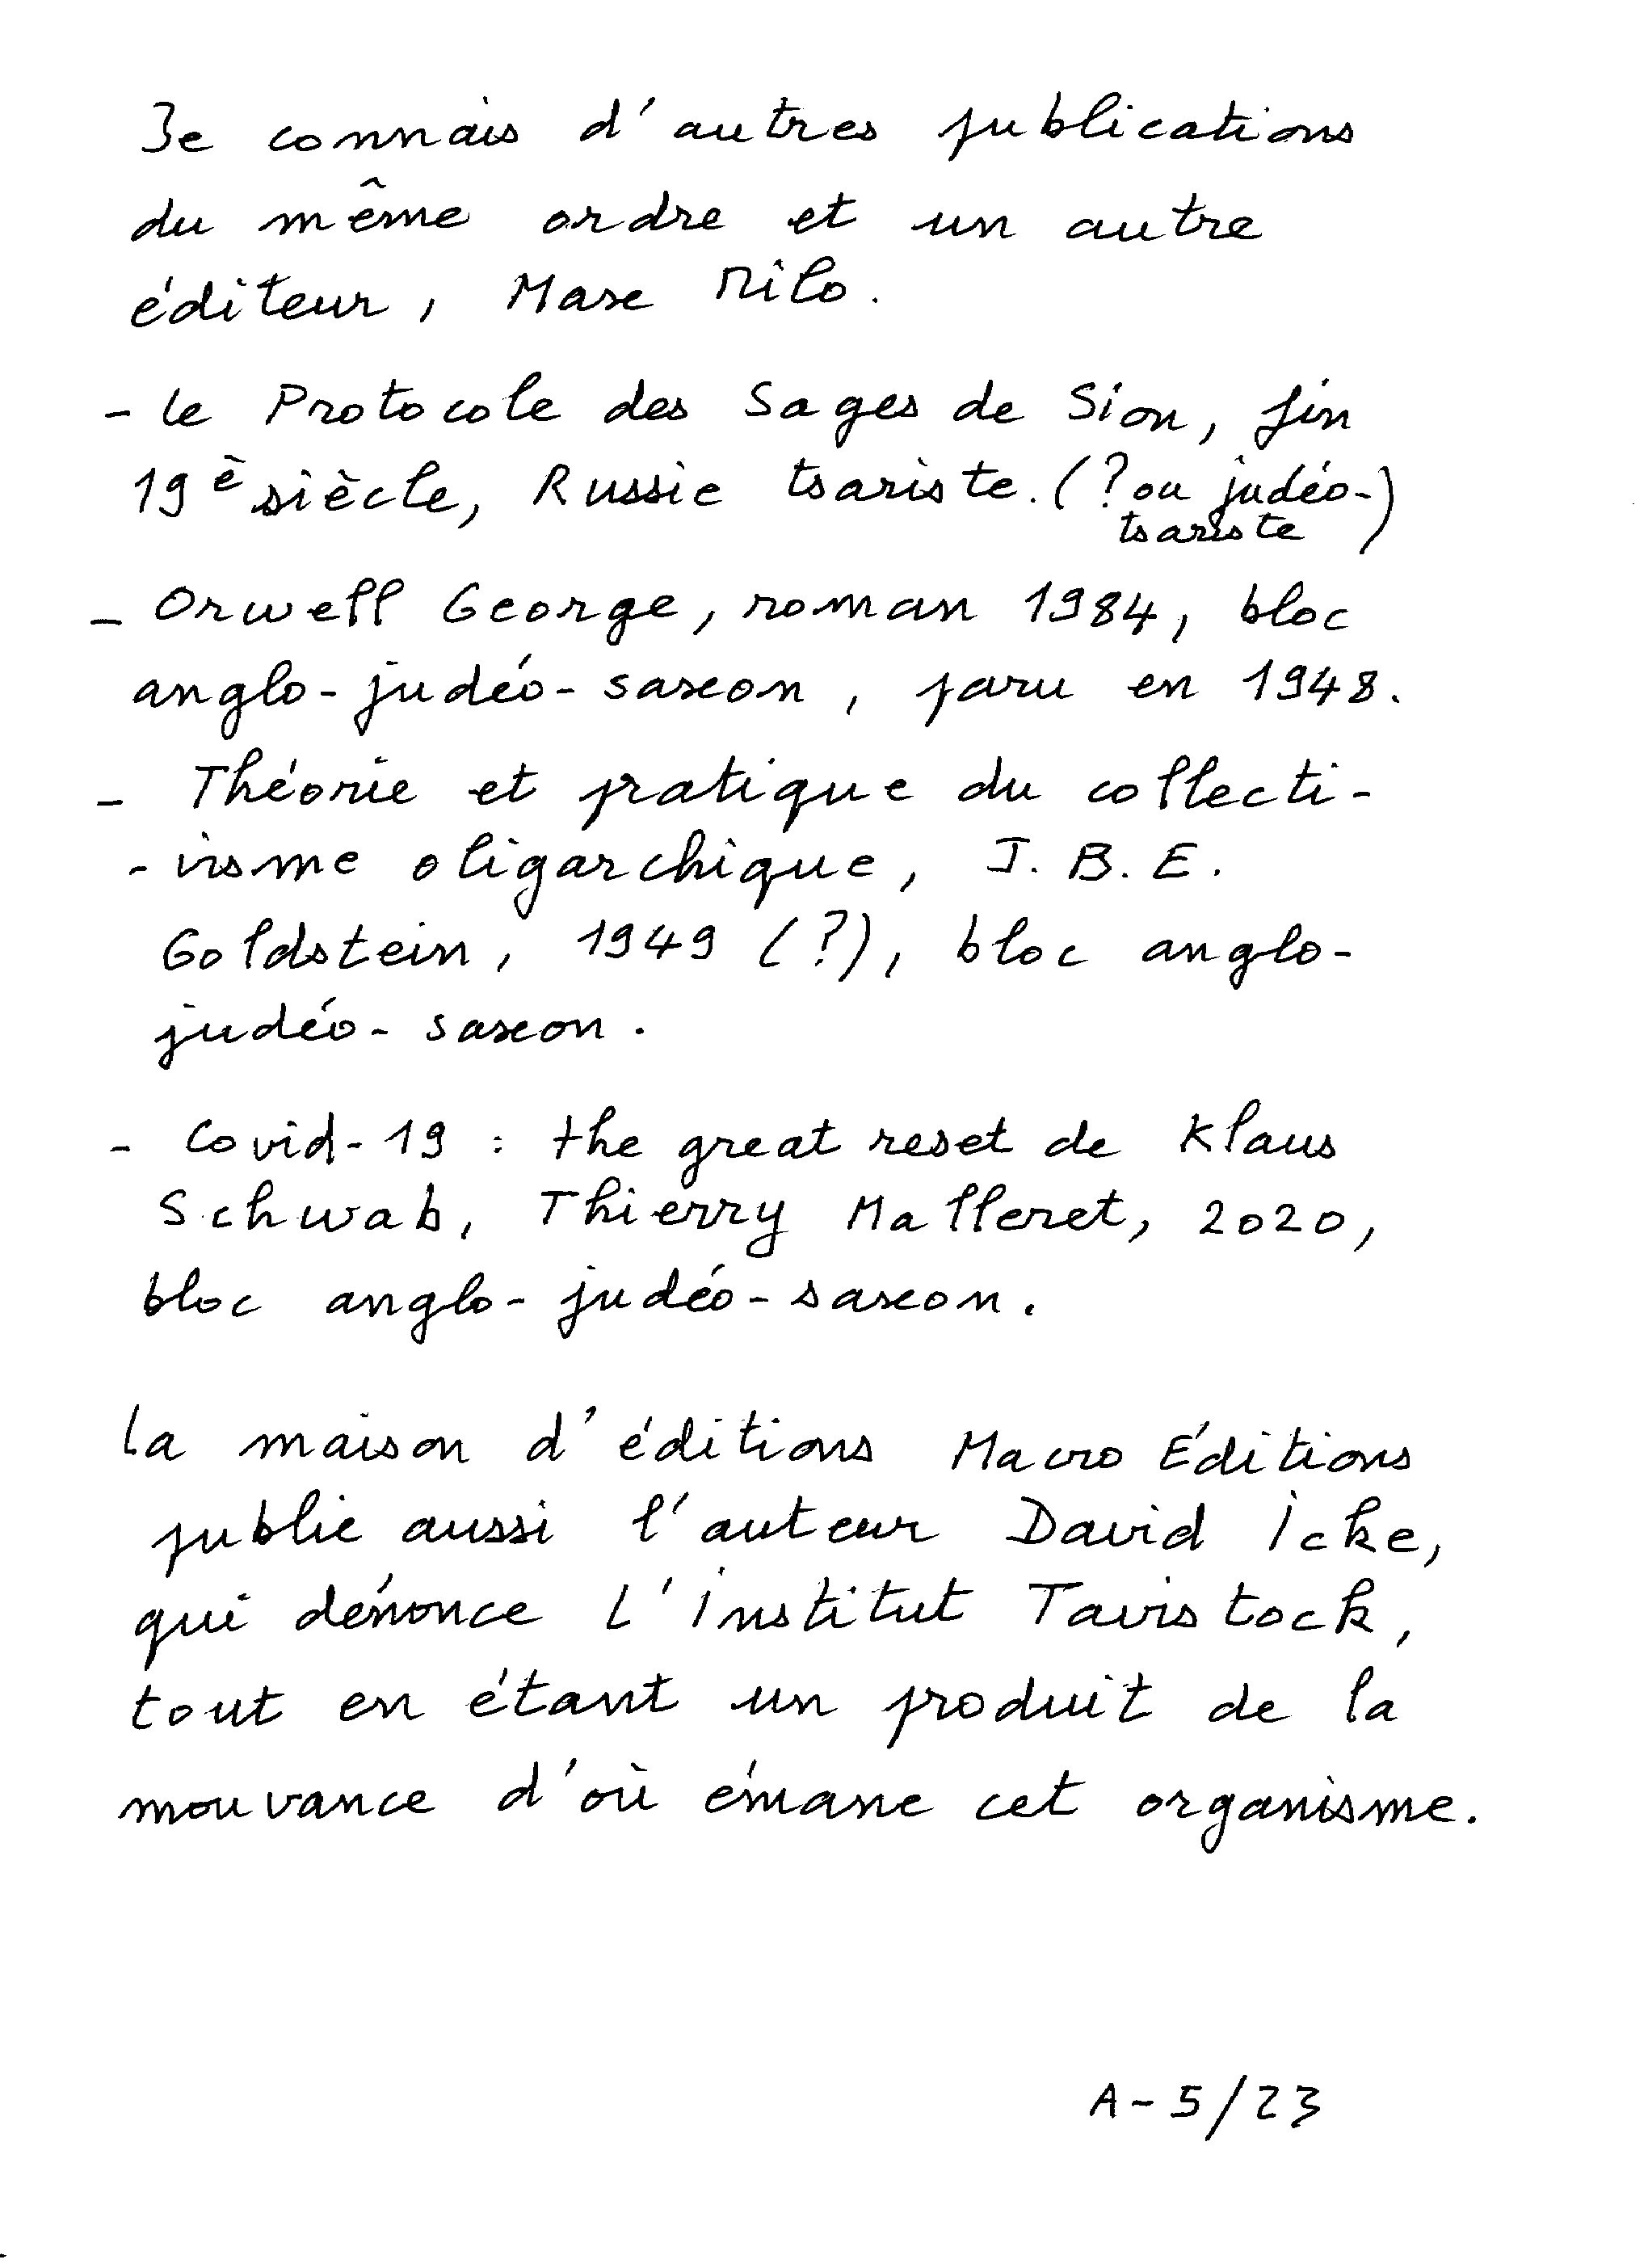 Je connais d'autres publications
du même ordre et un autre
éditeur, Max Milo.
- le Protocole des Sages de Sion, fin
19è siècle, Russie tsariste. (? ou judéo-)
tsariste
- Orwell George, roman 1984, bloc
anglo-judéo-saxon, paru en 1948.
- Théorie et pratique du collecti-
-visme oligarchique, J.B.E.
Goldstein, 1949 (?), bloc anglo-
judéo-saxon.
- Covid-19 : the great reset de Klaus
Schwab, Thierry Malleret, 2020,
bloc anglo-judéo-saxon.
la maison d'éditions Macro Éditions
publie aussi l'auteur David Icke,
qui dénonce l'Institut Tavistock,
tout en étant un produit de la
mouvance d'où émane cet organisme.
A-5/23